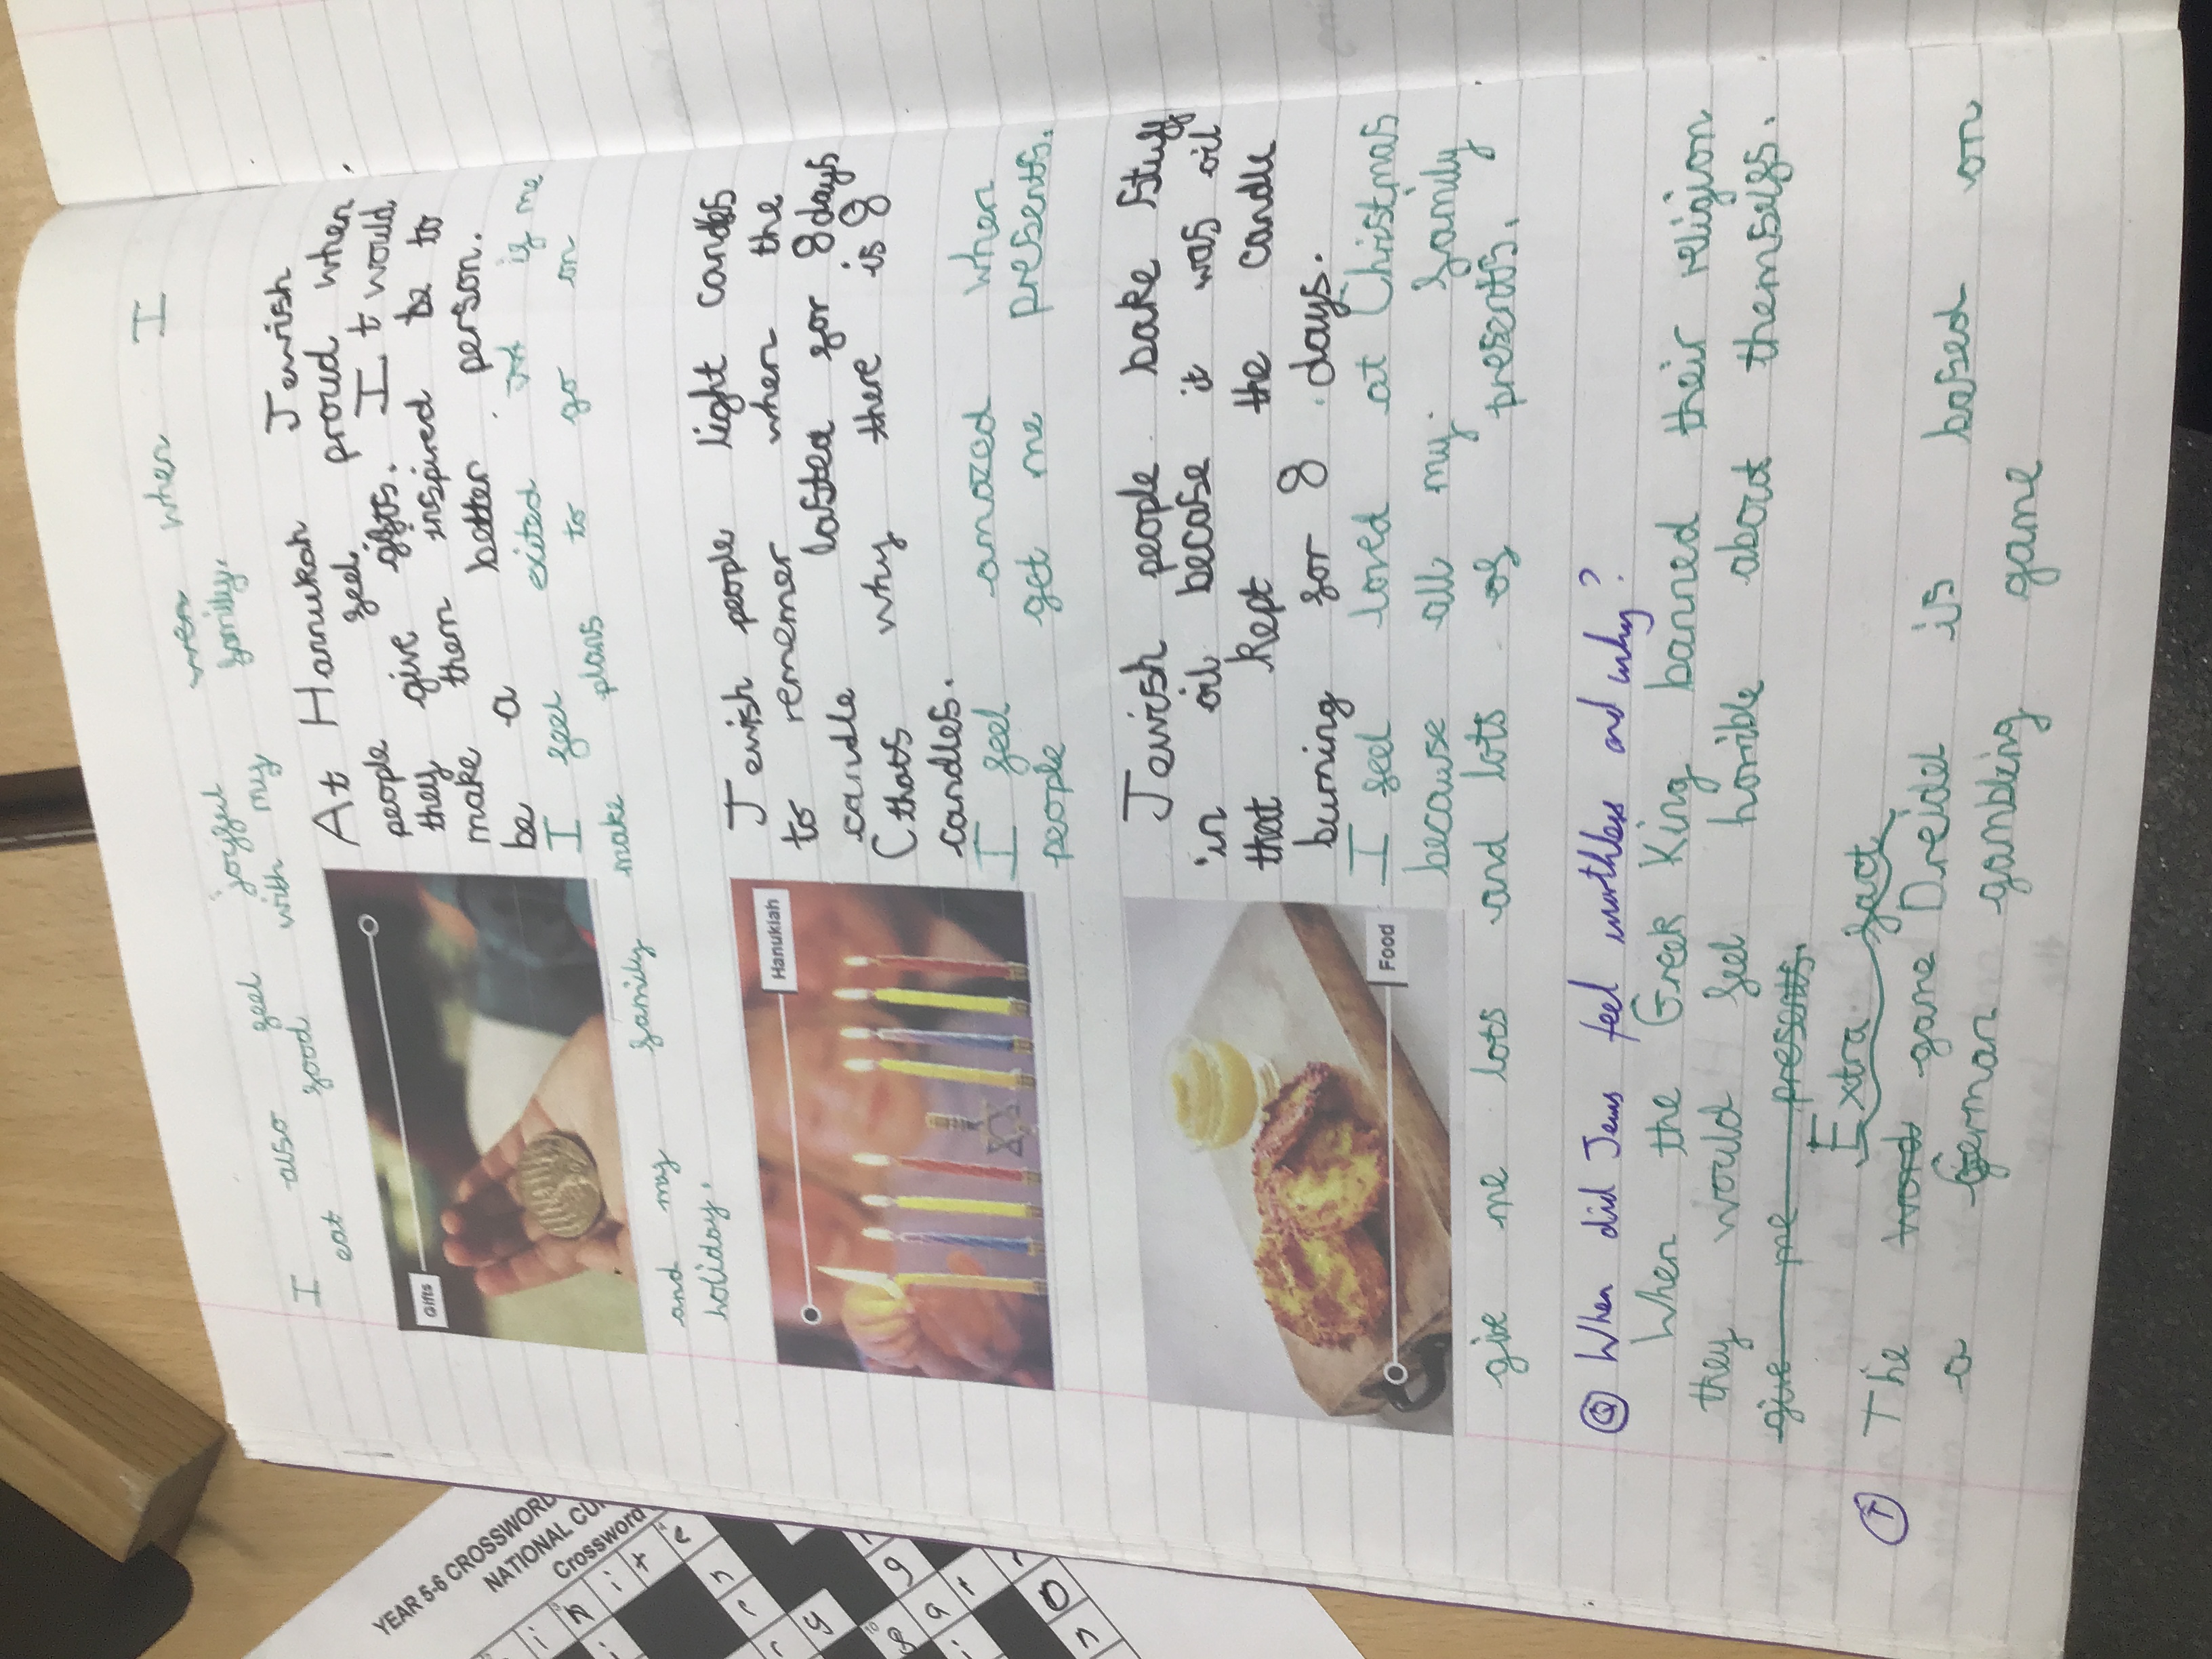 I also feel joyful when I
eat food with my family.
At Hanukah Jewish
people feel proud when
they give gifts. It would
make them inspired to
be a better person.
I feel exited if me
make plans to go on
and my family
holiday.
Gifts
Jewish people light candes
to rememer when the
candle lasted for 8 days
(thats why there is 8
candles.
I feel amazed when
people get me presents.
Hanukiah
Jewish people bake stuff
in oil becase it was oil
that kept the candle
burning for 8 days.
I feel loved at Christmas
because all my family
give me lots and lots of presents.
Food
Q When did Jews feel worthless and why?
When the Greek King banned their religion
they would feel horrible about themselfs.
give me presents.
Extra fact
T The game Dreidel is based on
a German gambling game
YEAR 5-6 CROSSWORD
NATIONAL CU
Crossword